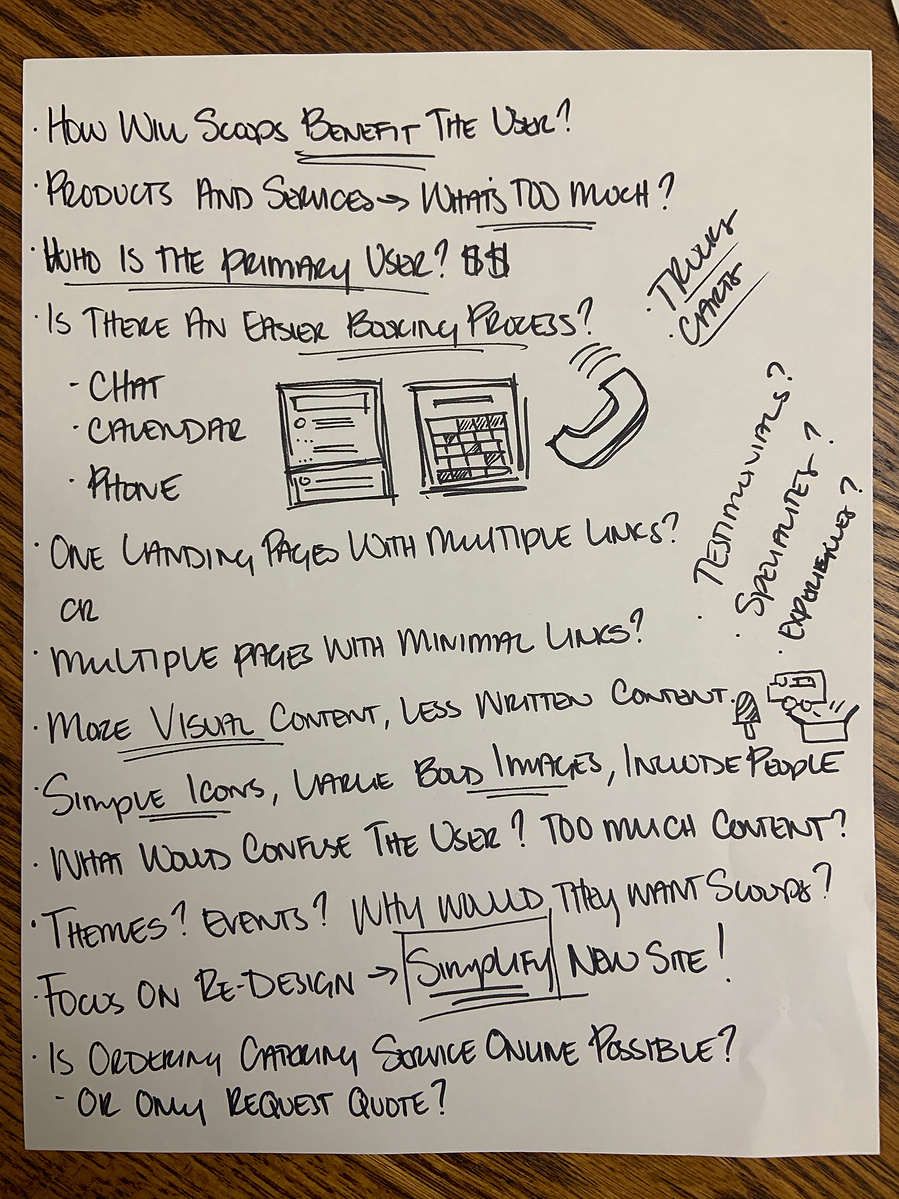 · How Will Scoops Benefit The User?
· Products And Services → What's Too Much?
· Who Is The Primary User? $$
· Trucks
· Carts
· Is There An Easier Booking Process?
- Chat
- Calendar
· Phone
· Testimonials?
· Specialites?
· Experiences?
· One Landing Pages With Multiple Links?
or
· Multiple Pages With Minimal Links?
· More Visual Content, Less Written Content.
· Simple Icons, Large Bold Images, Include People
· What Would Confuse The User? Too Much Content?
· Themes? Events? Why Would They Want Scoops?
· Focus On Re-Design → Simplify New Site!
· Is Ordering Catering Service Online Possible?
- Or Only Request Quote?